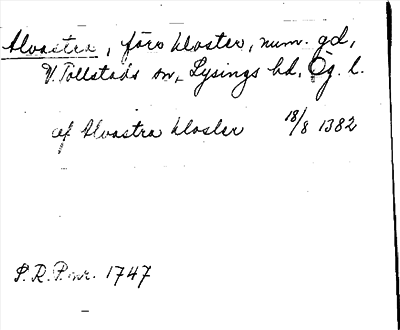 Alvastra, förr kloster, num. gd,
V. Tollstads sn, Lysings hd, Ög. l.
af Alvastra kloster 18/8 1382
S.R.P. nr. 1747